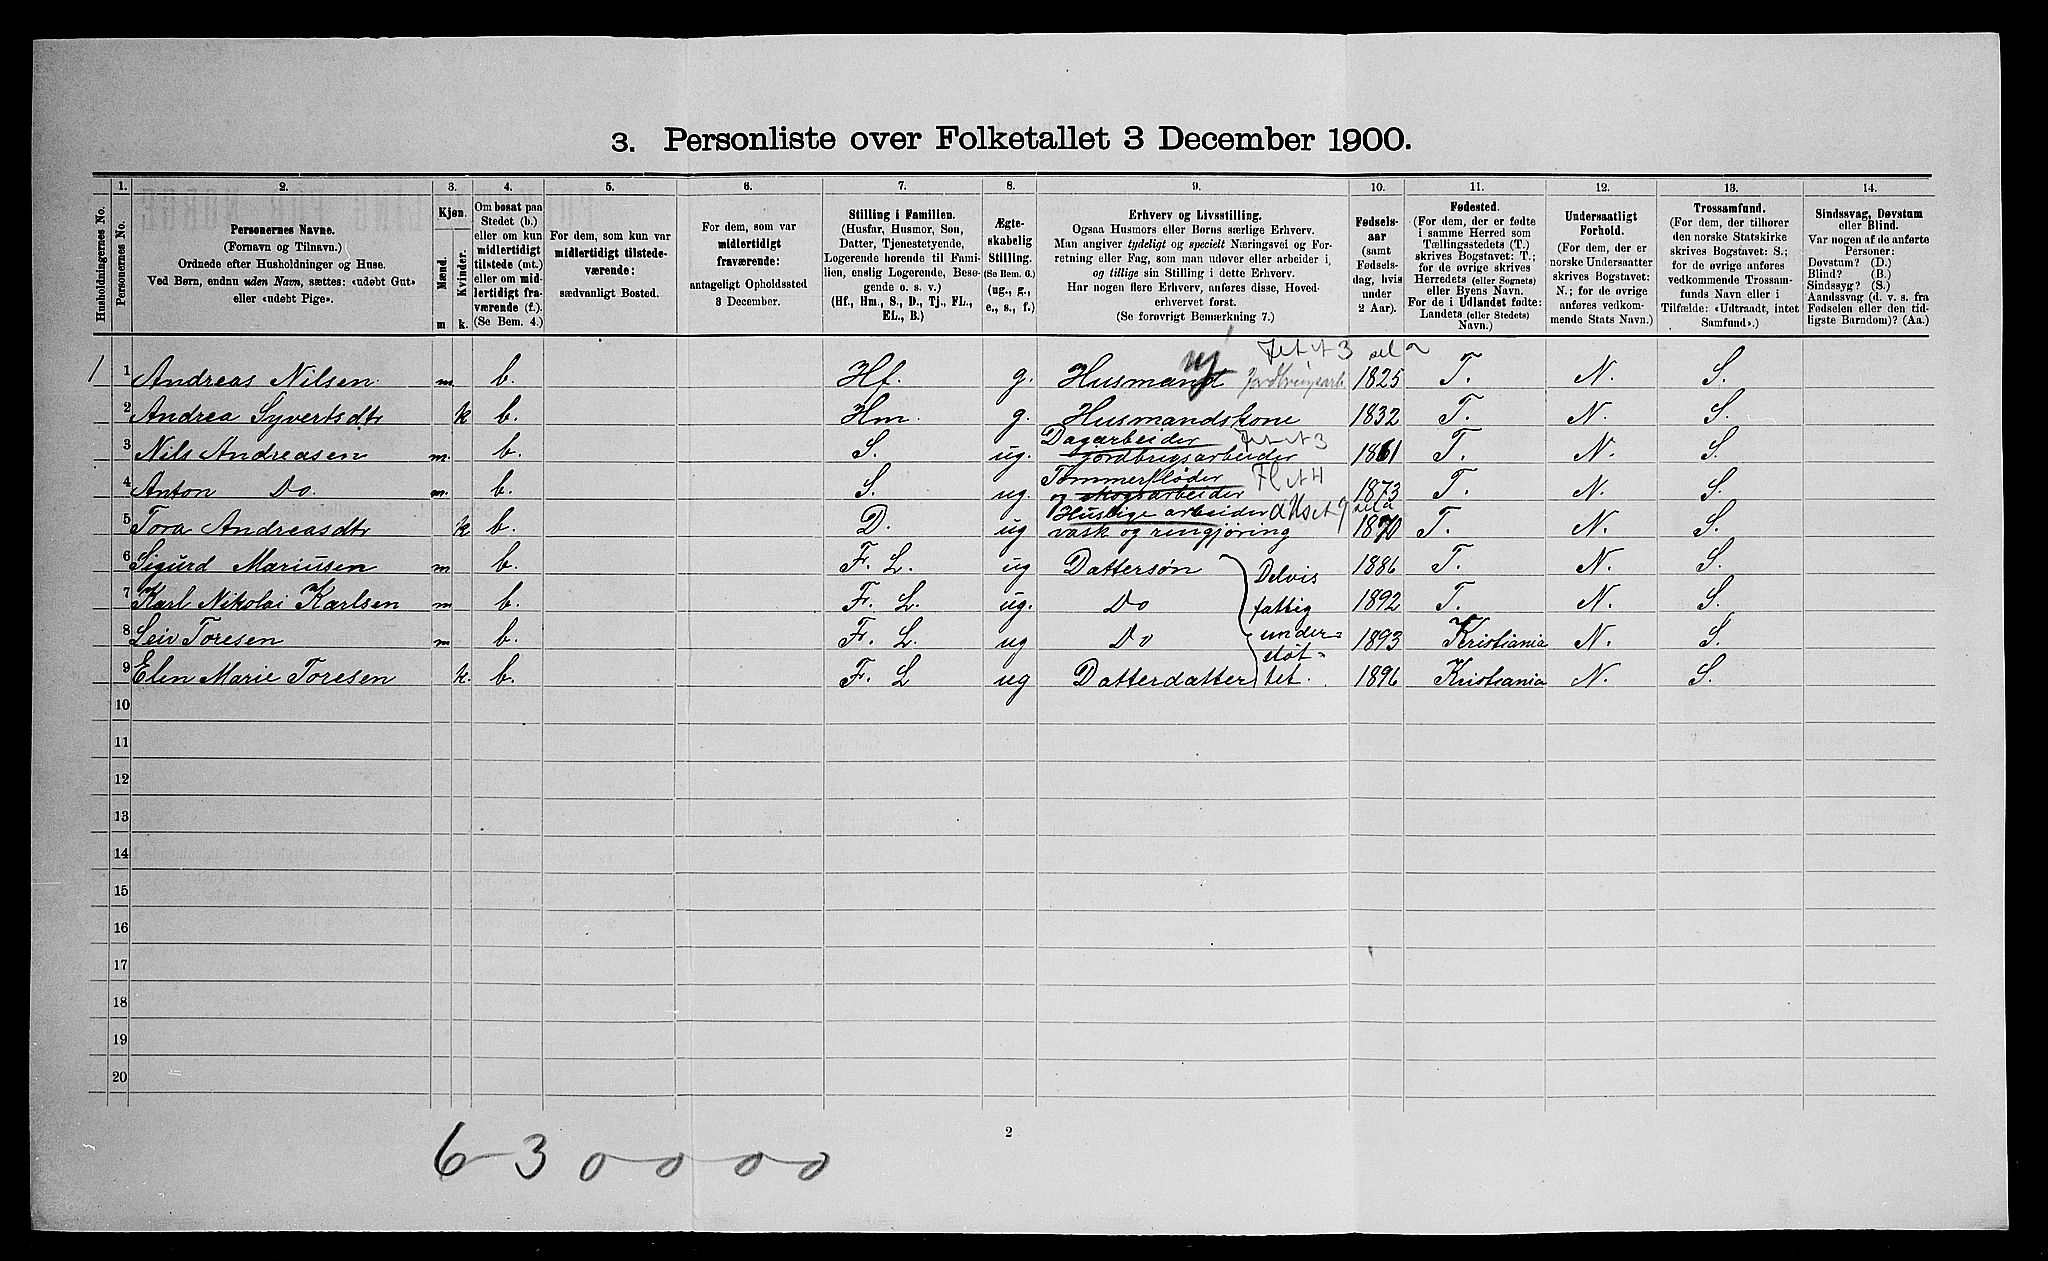 3. Personliste over Folketallet 3 December 1900.
Husholdningernes No.
1.
Personernes No.
2.
Personernes Navne.
(Fornavn og Tilnavn.)
Ordnede efter Husholdninger og Huse.
Ved Børn, endnu uden Navn, sættes: «udøbt Gut»
eller «udøbt Pige».
3.
Kjøn.
Mænd.
Kvinder.
m
k.
4.
Om bosat paa
Stedet (b.)
eller om kun
midlertidigt
tilstede (mt.)
eller om mid-
lertidigt fra-
værende (f.).
(Se Bem. 4.)
5.
For dem, som kun var
midlertidigt tilstede-
værende:
sædvanligt Bosted.
6.
For dem, som var
midlertidigt
fraværende:
antageligt Opholdssted
3 December.
7.
Stilling i Familien.
(Husfar, Husmor, Søn,
Datter, Tjenestetyende,
Logerende hørende til Fami-
lien, enslig Logerende, Besø-
gende o. s. v.)
(Hf., Hm., S., D., Tj., FL.,
EL., B.)
8.
Ægte-
skabelig
Stilling.
(Se Bem. 6.)
(ug., g.,
e., s., f.)
9.
Erhverv og Livsstilling.
Ogsaa Husmors eller Børns særlige Erhverv.
Man angiver tydeligt og specielt Næringsvei og For-
retning eller Fag, som man udøver eller arbeider i,
og tillige sin Stilling i dette Erhverv.
Har nogen flere Erhverv, anføres disse, Hoved-
erhvervet først.
(Se forøvrigt Bemærkning 7.)
10.
Fødsels-
aar
(samt
Fødsels-
dag, hvis
under
2 Aar).
11.
Fødested.
(For dem, der er fødte
i samme Herred som
Tællingsstedets (T.)
skrives Bogstavet: T.;
for de øvrige skrives
Herredets (eller Sognets)
eller Byens Navn.
For de i Udlandet fødte:
Landets (eller Stedets)
Navn.)
12.
Undersaatligt
Forhold.
(For dem, der er
norske Undersaatter
skrives Bogstavet:
N.; for de øvrige
anføres vedkom-
mende Stats Navn.)
13.
Trossamfund.
(For dem, der tilhører
den norske Statskirke
skrives Bogstavet: S.;
for de øvrige anføres
vedkommende Trossam-
funds Navn eller i
Tilfælde: «Udtraadt, intet
Samfund».)
14.
Sindssvag, Døvstum
eller Blind.
Var nogen af de anførte
Personer:
Døvstum? (D.)
Blind? (B.)
Sindssyg? (S.)
Aandssvag (d. v. s. fra
Fødselen eller den tid-
ligste Barndom)? (Aa.)
1 1 Andreas Nilsen m. b. Hf. g. Husmand Jordbrugsarb 1825 T. N. S.
2 Andrea Syvertsdtr k b. Hm. g. Husmandskone 1832 T. N. S.
3 Nils Andreasen m. b. S. ug. Dagarbeider jordbrugsarbeider 1861 T. N. S.
4 Anton Do. m. b. S. ug. Tømmerfløder og skogsarbeider 1873 T. N. S.
5 Tora Andreasdtr k b. D. ug Huslige arbeider vask og rengjøring 1870 T. N. S.
6 Sigurd Mariusen m b. Fr. L. ug Dattersøn Delvis 1886 T. N. S.
7 Karl Nikolai Karlsen m b. Fr. L. ug. Do fattig 1892 T. N. S.
8 Leiv Toresen m b. Fr. L. ug Do under= støt= 1893 Kristiania N. S.
9 Elen Marie Toresen k. b. Fr. L ug Datterdatter tet. 1896 Kristiania N. S.
10
11
12
13
14
15
16
17
18
19
20
2
6-3 0 0 0 0